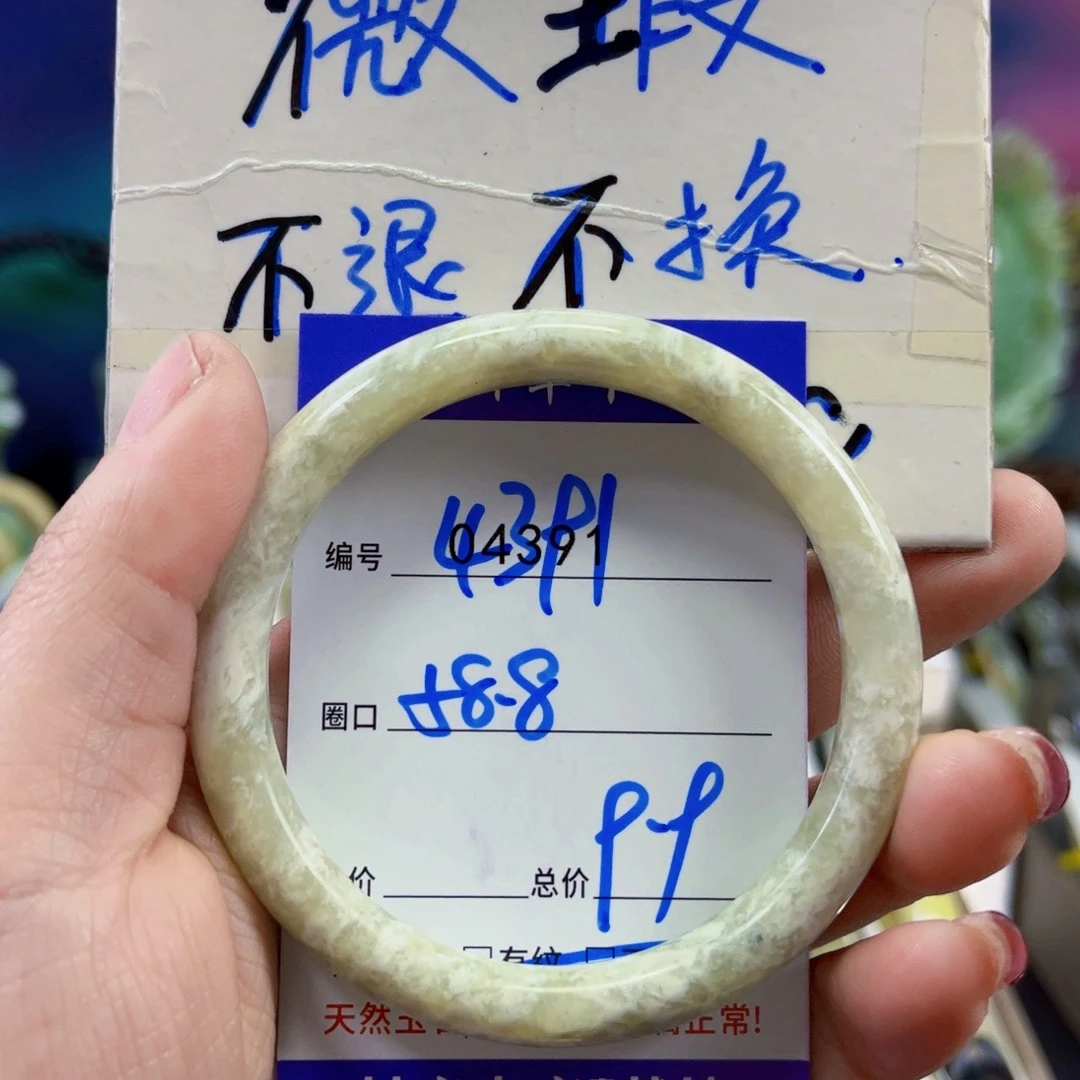 微瑕
不退不换.
编号 04391 4391
圈口 58.8
价 总价 99
□有纹 □
天然玉 正常!